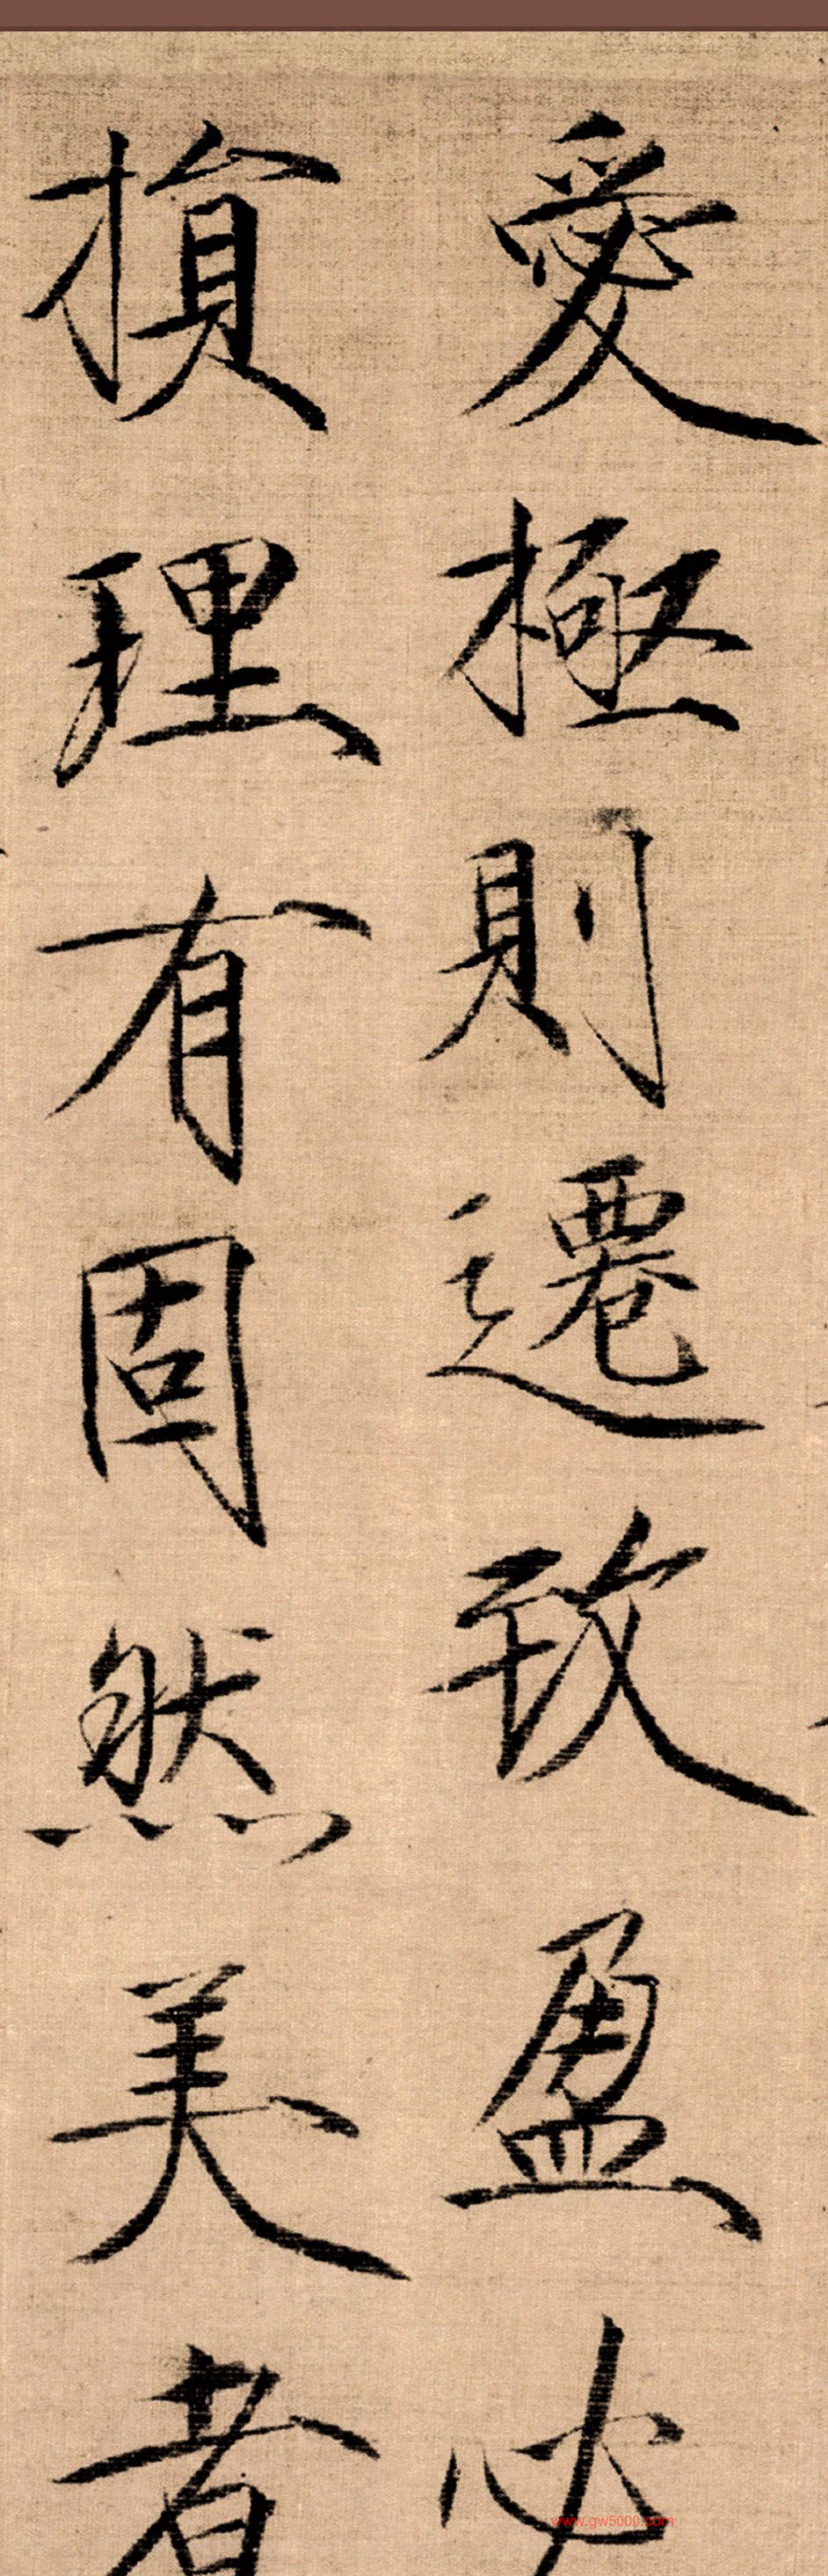 愛極則遷致盈必
損理有固然美者
www.gw5000.com